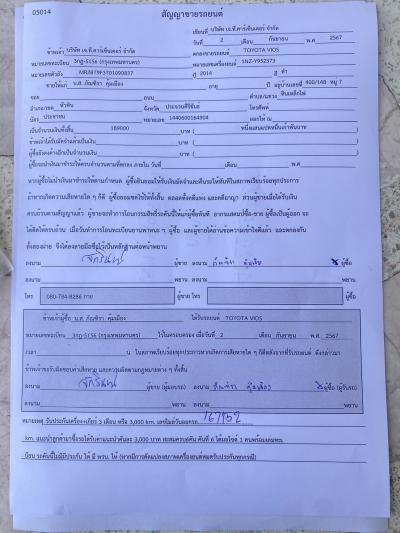 05014
สัญญาขายรถยนต์
เขียนที่ บริษัท เจ.ที.คาร์เซ็นเตอร์ จำกัด
วันที่ 2 เดือน กันยายน พ.ศ 2567
ข้าพเจ้า บริษัท เจ.ที.คาร์เซ็นเตอร์ จำกัด ตกลงขายรถยนต์ TOYOTA VIOS
หมายเลขทะเบียน 3กฎ-5156 (กรุงเทพมหานคร) หมายเลขเครื่องยนต์ 1NZ-Y952373
หมายเลขตัวถัง MR2BT9F3701090837 ปี 2014 สี ดำ
ขายให้แก่ น.ส. กัณฑิรา คุ้มเมือง อายุ ปี อยู่บ้านเลขที่ 400/148 หมู่ 7
ซอย ถนน ตำบล/แขวง หินเหล็กไฟ
อำเภอ/เขต หัวหิน จังหวัด ประจวบคีรีขันธ์ โทรศัพท์
บัตร ประชาชน หมายเลข 1440600164904 ออกให้ ณ
เป็นจำนวนเงินทั้งสิ้น 189000 บาท ( หนึ่งแสนแปดหมื่นเก้าพันบาท )
ข้าพเจ้าได้รับมัดจำแล้วเป็นเงิน บาท ( )
ผู้ซื้อยังคงค้างอีกเป็นจำนวนเงิน บาท ( )
ผู้ซื้อจะนำเงินมาชำระให้ครบจำนวนตามที่ตกลง ภายใน วันที่ เดือน พ.ศ
หากผู้ซื้อไม่นำเงินมาชำระให้ตามกำหนด ผู้ซื้อยินยอมให้รับเงินมัดจำและคืนรถให้ทันทีในสภาพเรียบร้อยทุกประการ
ถ้าหากเกิดความเสียหายใด ๆ ก็ดี ผู้ซื้อยอมชดใช้ให้ทั้งสิ้น ตลอดทั้งคดีแพ่ง และคดีอาญา ส่วนผู้ขายเมื่อได้รับเงิน
ครบถ้วนตามสัญญาแล้ว ผู้ขายจะทำการโอนกรรมสิทธิ์รถคันนี้ให้แก่ผู้ซื้อทันที
ทั้งสองฝ่าย จึงได้ลงลายมือชื่อไว้เป็นหลักฐานต่อหน้าพยาน
ลงนาม ผู้ขาย ลงนาม ผู้ซื้อ
ลงนาม พยาน ลงนาม พยาน
โทร 080-784-8286 ผู้ขาย โทร ผู้ซื้อ
ข้าพเจ้าผู้ซื้อ น.ส. กัณฑิรา คุ้มเมือง ได้รับรถยนต์ TOYOTA VIOS
หมายเลขทะเบียน 3กฎ-5156 (กรุงเทพมหานคร) ไว้ในครอบครอง เมื่อวันที่ 2 เดือน กันยายน พ.ศ. 2567
เวลา น. ในสภาพเรียบร้อยทุกประการหากเกิดการเสียหายใด ๆ ก็ดีหลังจากที่รับรถยนต์ ดังกล่าวมา
ข้าพเจ้าขอรับผิดชอบค่าเสียหาย และความผิดตามกฎหมายต่าง ๆ ทั้งสิ้น
ลงนาม ผู้ขาย (ผู้มอบรถ) ลงนาม ผู้ซื้อ (ผู้รับรถ)
ลงนาม พยาน ลงนาม พยาน
หมายเหตุ รับประกันเครื่อง+เกียร์ 3 เดือน หรือ 3,000 km. เลขไมล์วันออกรถ 167952
km. แนะนำลูกค้ามาซื้อรถได้รับค่าแนะนำคันละ 3,000 บาท